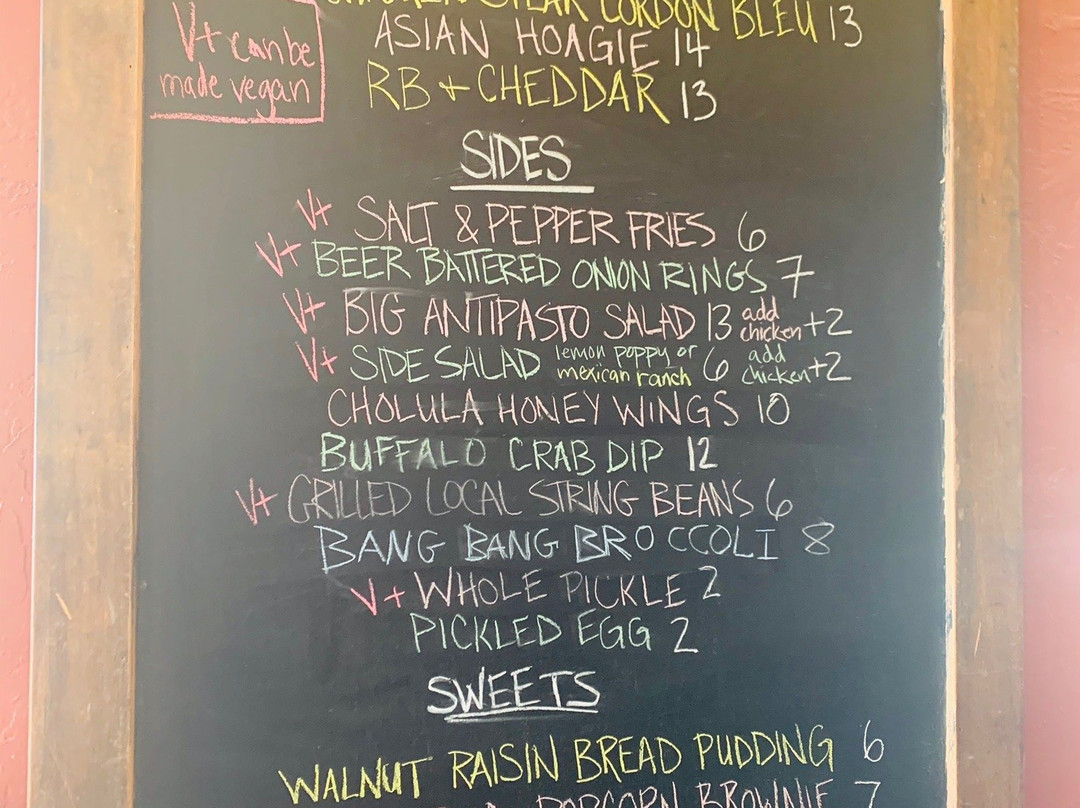 STEAK CORDON BLEU 13
V+ can be
made vegan
ASIAN HOAGIE 14
RB + CHEDDAR 13
SIDES
V+ SALT & PEPPER FRIES 6
V+ BEER BATTERED ONION RINGS 7
V+ BIG ANTIPASTO SALAD 13 add chicken +2
V+ SIDE SALAD lemon poppy or mexican ranch 6 add chicken +2
CHOLULA HONEY WINGS 10
BUFFALO CRAB DIP 12
V+ GRILLED LOCAL STRING BEANS 6
BANG BANG BROCCOLI 8
V+ WHOLE PICKLE 2
PICKLED EGG 2
SWEETS
WALNUT RAISIN BREAD PUDDING 6
POPCORN BROWNIE 7